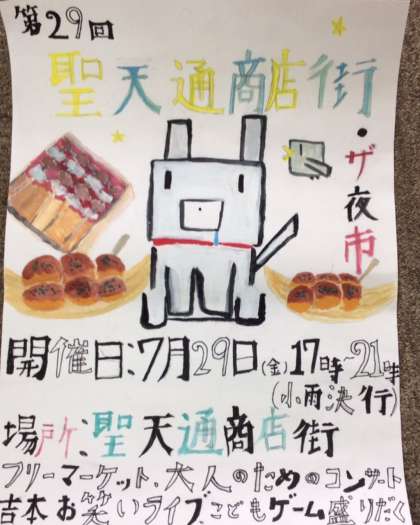 第29回
聖天通商店街
・ザ夜市
開催日:7月29日(金)17時~21時
(小雨決行)
場所:聖天通商店街
フリーマーケット、大人のためのコンサート
吉本お笑いライブこどもゲーム盛りだく